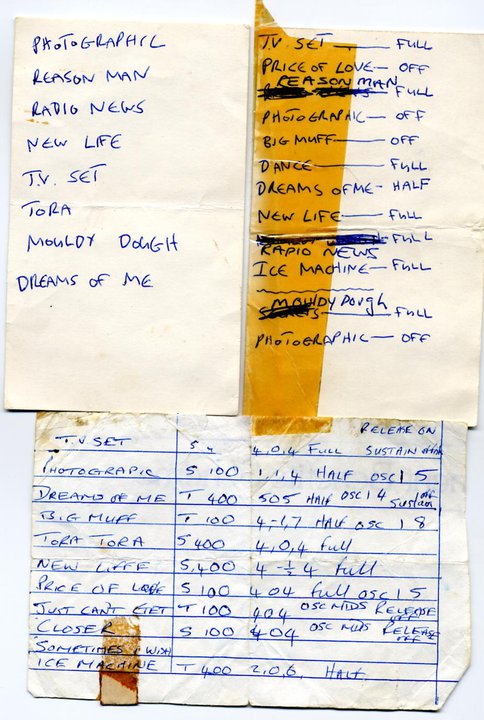 PHOTOGRAPHIC
REASON MAN
RADIO NEWS
NEW LIFE
T.V. SET
TORA
MOULDY DOUGH
DREAMS OF ME
T.V. SET — FULL
PRICE OF LOVE — OFF
REASON MAN
FULL
PHOTOGRAPHIC — OFF
BIG MUFF — OFF
DANCE — FULL
DREAMS OF ME — HALF
NEW LIFE — FULL
FULL
RADIO NEWS
ICE MACHINE — FULL
MOULDY DOUGH
FULL
PHOTOGRAPHIC — OFF
RELEASE ON
T.V SET S 4,0,4 FULL SUSTAIN
PHOTOGRAPIC S 100 1,1,4 HALF OSC 1 5
DREAMS OF ME T 400 505 HALF OSC 1 4 Sustain off
BIG MUFF T 100 4,-1,7 HALF OSC 1 8
TORA TORA S 400 4,0,4 full
NEW LIFFE S,400 4 -½ 4 full
PRICE OF LOVE S 100 404 full OSC 1 5
JUST CANT GET T 100 404 OSC MIDS RELEASE OFF
CLOSER S 100 404 OSC MIDS RELEASE OFF
SOMETIMES I WISH
ICE MACHINE T 400 2,0,6, HALF